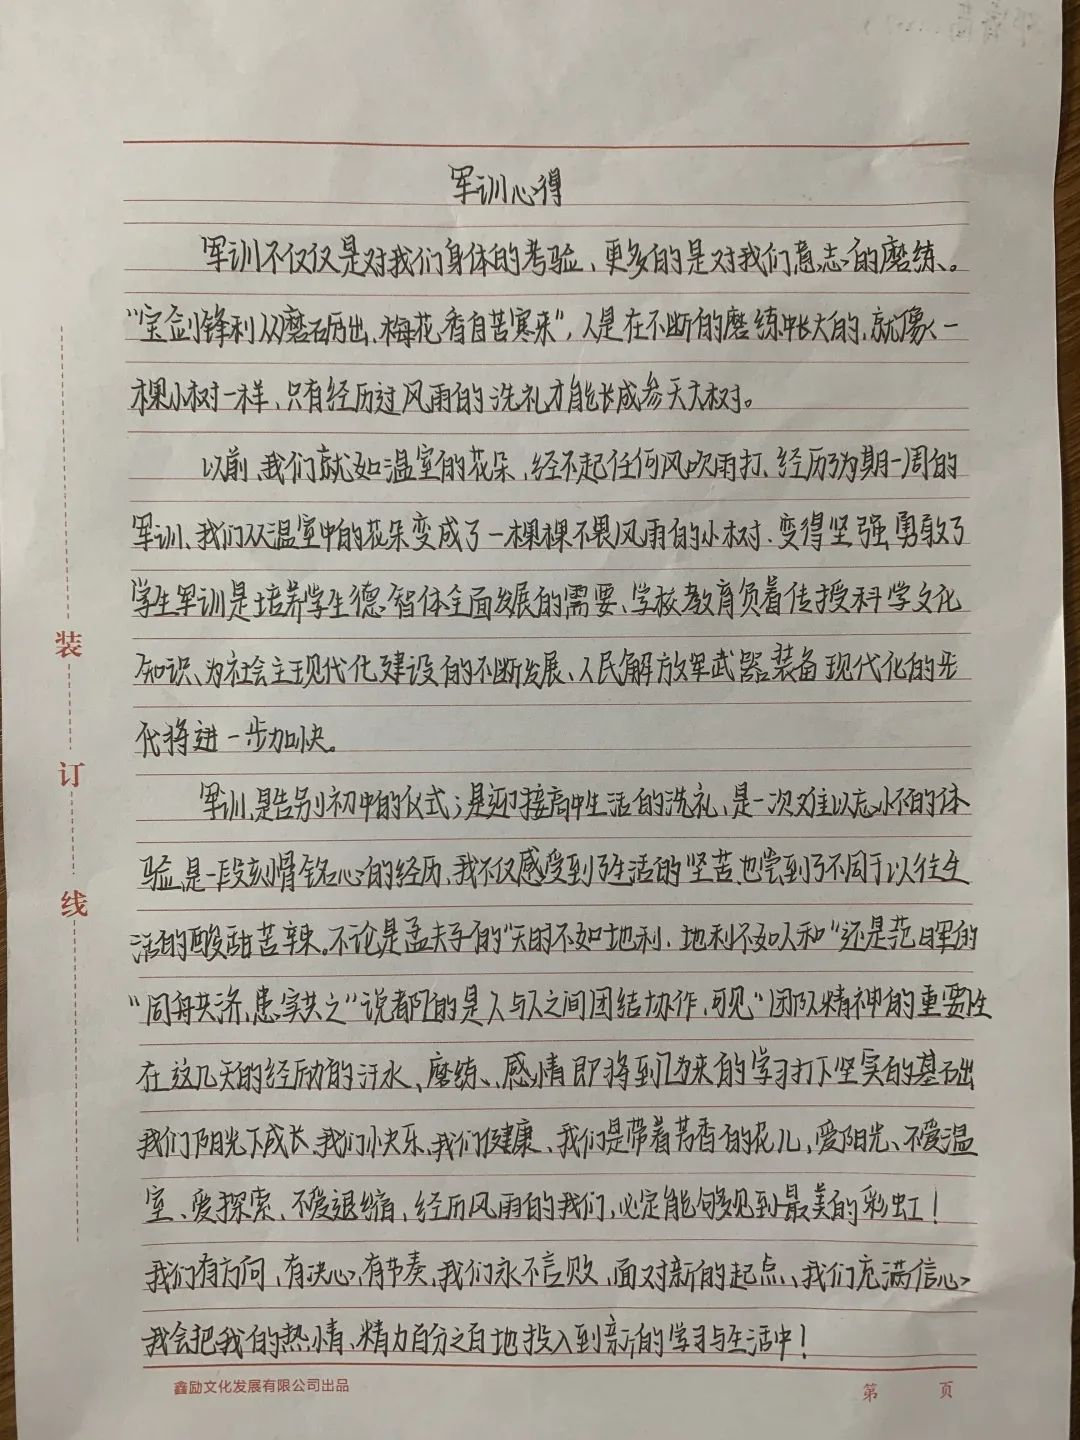 军训心得
军训不仅仅是对我们身体的考验、更多的是对我们意志的磨练、。
“宝剑锋利从磨砺出、梅花香自苦寒来”,人是在不断的磨练中长大的,就像一
棵小树一样、只有经历过风雨的洗礼才能长成参天大树。
以前、我们就如温室的花朵,经不起任何风吹雨打、经历了为期一周的
军训、我们从温室中的花朵变成了一棵棵不畏风雨的小树、变得坚强勇敢了
学生军训是培养学生德智体全面发展的需要、学校教育负着传授科学文化
知识、为社会主现代化建设的不断发展、人民解放军武器装备现代化的步
代将进一步加快。
军训、是告别初中的仪式;是迎接高中生活的洗礼、是一次难以忘怀的体
验、是一段刻骨铭心的经历、我不仅感受到了生活的坚苦、也尝到了不同于以往生
活的酸甜苦辣。不论是孟夫子的“天时不如地利、地利不如人和”还是范晔的
“同舟共济、患实共之”说都的是人与人之间团结协作,可见“团队精神的重要性
在这几天的经历的汗水、磨练、感情即将到为来的学习打下坚实的基础
我们阳光下成长、我们小快乐、我们健康、我们是带着芳香的花儿,爱阳光、不爱温
室、爱探索、不爱退缩、经历风雨的我们,必定能够见到最美的彩虹!
我们有方向、有决心、有节奏、我们永不言败、面对新的起点、我们充满信心
我会把我的热情、精力百分之百地投入到新的学习与生活中!
装
订
线
鑫励文化发展有限公司出品
第 页